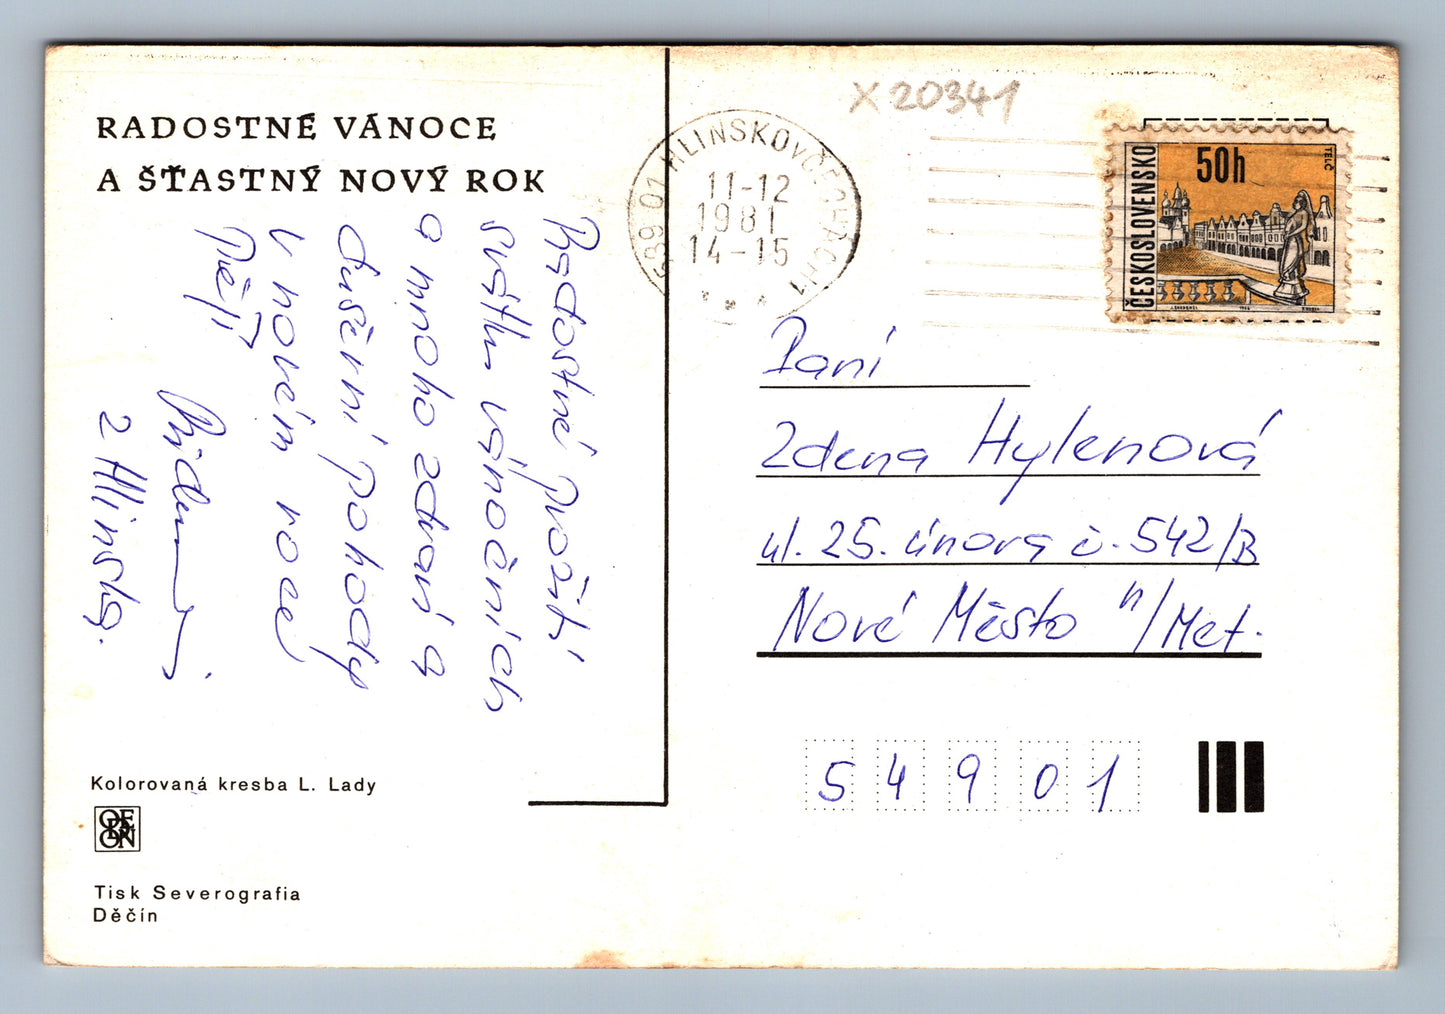 RADOSTNÉ VÁNOCE
A ŠŤASTNÝ NOVÝ ROK
Radostné prožití
svátku vánočních
a mnoho zdraví a
duševní pohody
v novém roce
přejí
z Hlinska.
Kolorovaná kresba L. Lady
ODEON
Tisk Severografia
Děčín
X 20341
539 01 HLINSKO V ČECHÁCH 1
11-12
1981
14-15
ČESKOSLOVENSKO
50h
TELČ
Paní
Zdena Hylenová
ul. 25. února č. 542/B
Nové Město n/Met.
54901